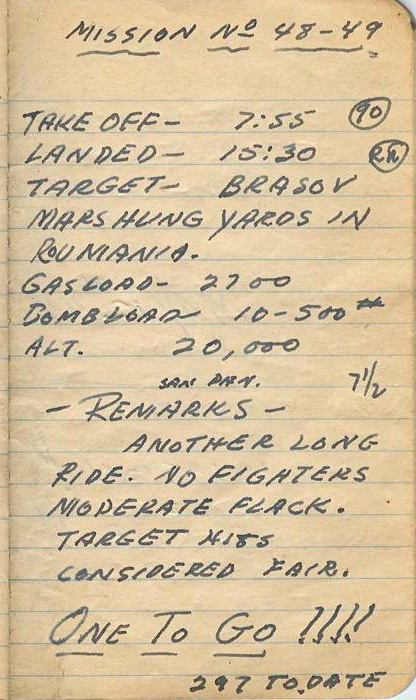 MISSION No 48-49
TAKE OFF- 7:55 90
LANDED- 15:30
TARGET- BRASOV
MARSHLING YARDS IN
ROUMANIA.
GASLOAD- 2700
BOMBLOAD- 10-500#
ALT. 20,000
SAN PAN. 7 1/2
- REMARKS -
ANOTHER LONG
RIDE. NO FIGHTERS
MODERATE FLACK.
TARGET HITS
CONSIDERED FAIR.
ONE TO GO !!!!
297 TO DATE